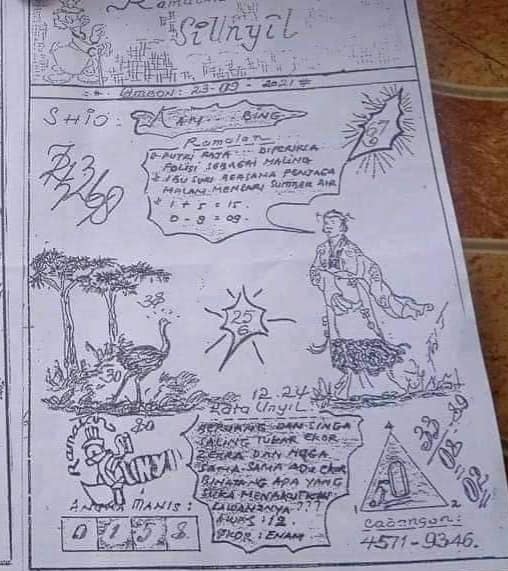 Ramalan
Si Unyil
AMBON : 23-09-2021
SHIO : KAM...BING
Ramalan
PUTRI RAJA ... DIPERIKSA
POLISI SEBAGAI MALING
IBU SURI BERSAMA PENJAGA
MALAM MENCARI SUMBER AIR
1 + 5 = 15.
0 - 9 = 09.
67
6
38
30
25
6
12.24
Kata Unyil :
BERUANG DAN SINGA
SALING TUKAR EKOR
ZEBRA DAN NAGA
SAMA-SAMA ADU EKOR
BINATANG APA YANG
SUKA MENAKUTKAN
LAWANNYA ???
AWAS : 12.
EKOR : ENAM
Ramalan
UNYIL
20
ANGKA MANIS :
0 1 5 8
4
0
1
2
33 - 89
08 - 02
Cadangan :
4571-9346.